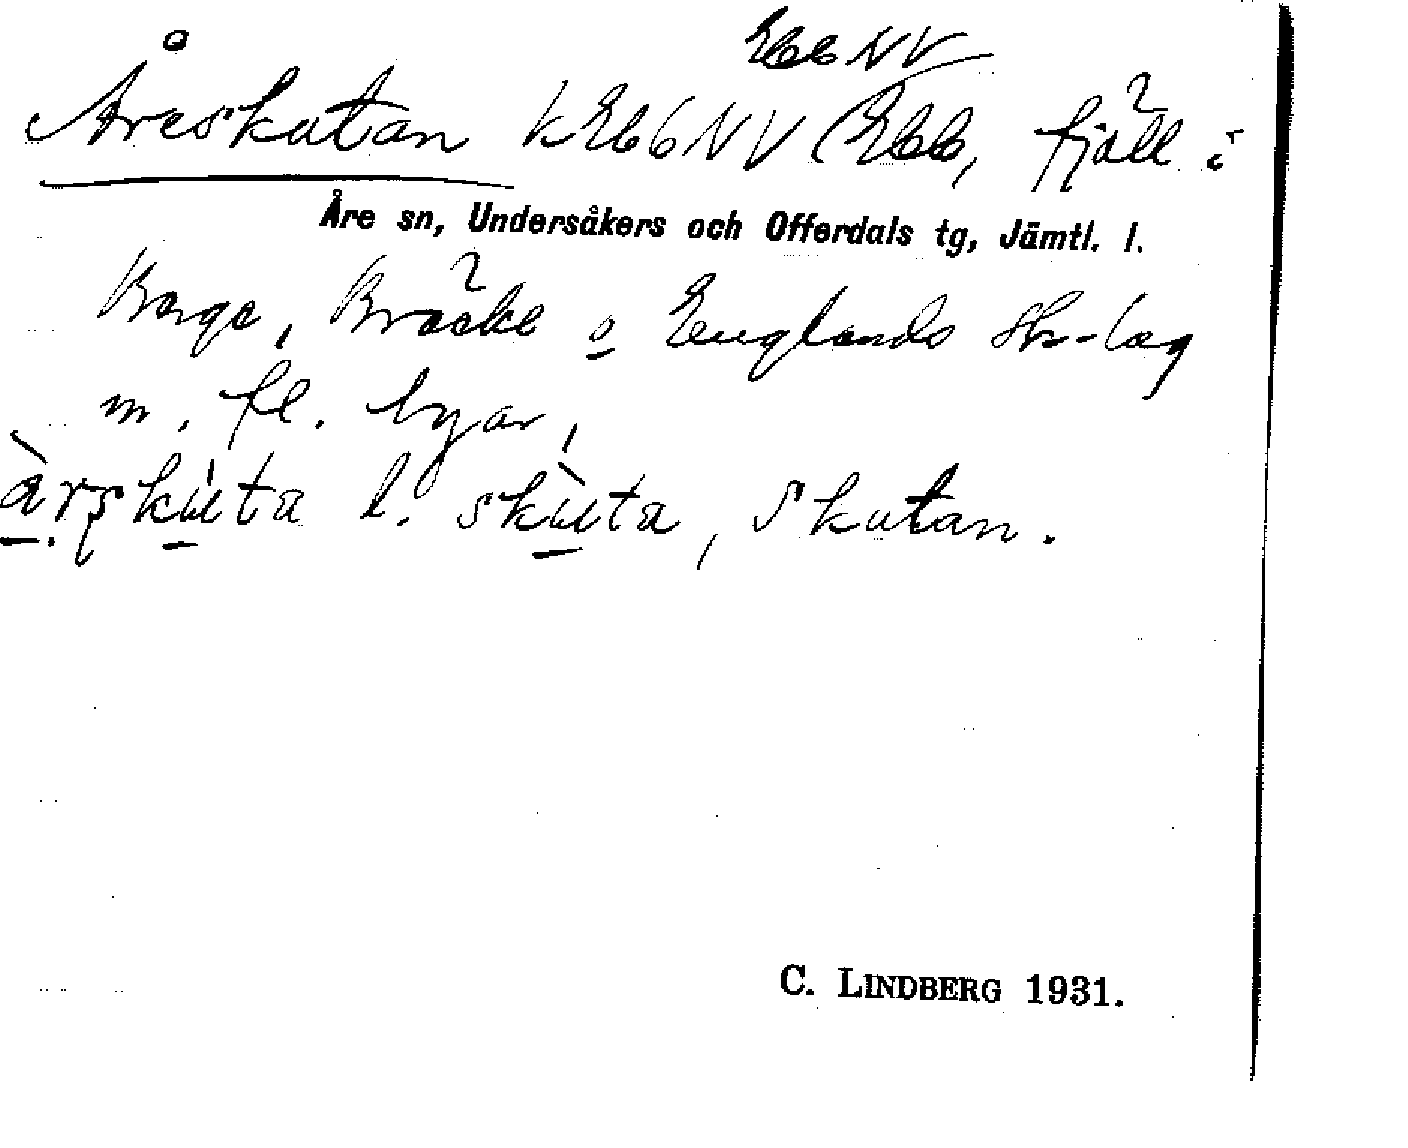 EbbNV
Åreskutan kEbbNV (Ebb, fjäll i
Åre sn, Undersåkers och Offerdals tg, Jämtl. l.
Berge, Bräcke o Englands sk-lag
m. fl. byar,
skùta, Skutan.
C. LINDBERG 1931.